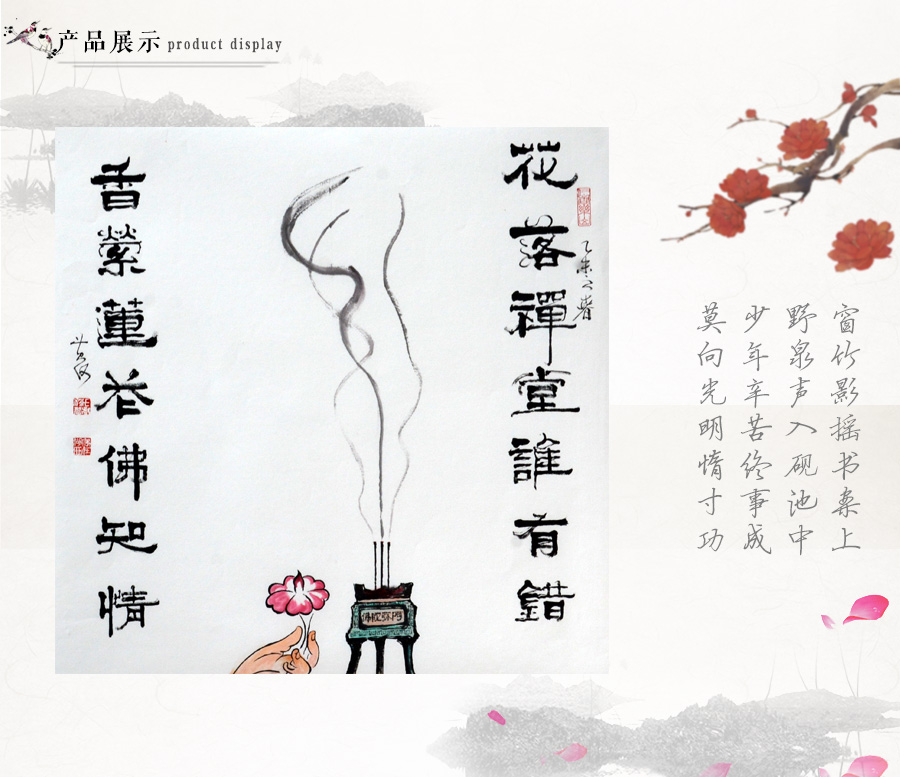 产品展示 product display
花落禪堂誰有錯
乙未之春
香縈蓮花佛知情
窗竹影摇书案上
野泉声入砚池中
少年辛苦终事成
莫向光明惰寸功